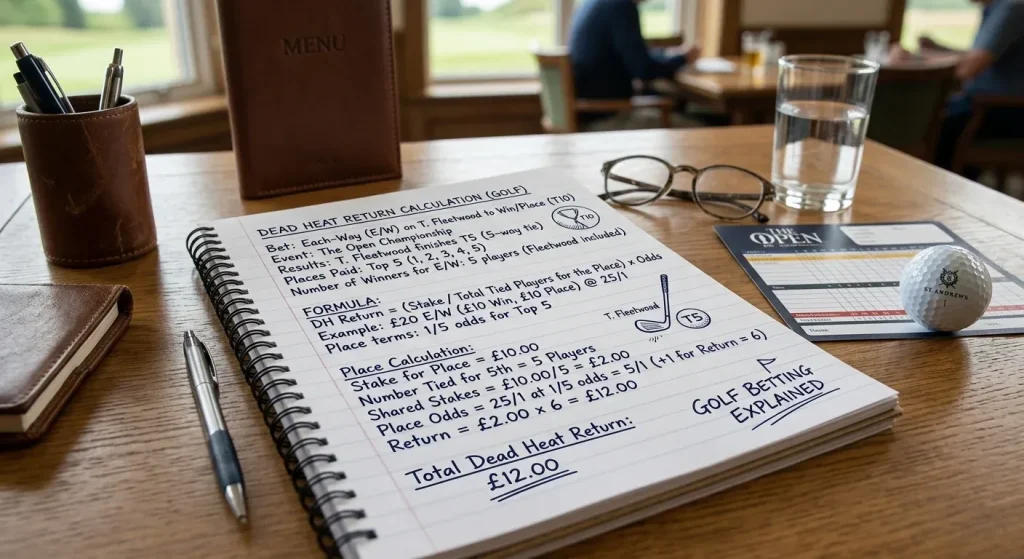 MENU
DEAD HEAT RETURN CALCULATION (GOLF)
Bet: Each-Way (E/W) on T. Fleetwood to Win/Place (T10)
Event: The Open Championship
Results: T. Fleetwood Finishes T5 (5-way tie)
Places Paid: Top 5 (1, 2, 3, 4, 5)
Number of Winners for E/W: 5 players (Fleetwood included)
T10
FORMULA:
DH Return = (Stake / Total Tied Players for the Place) x Odds
Example: £20 E/W (£10 Win, £10 Place) @ 25/1
Place terms: 1/5 odds for Top 5
T. Fleetwood
T5
Place Calculation:
Stake for Place = £10.00
Number Tied for 5th = 5 Players
Shared Stakes = £10.00/5 = £2.00
Place Odds = 25/1 at 1/5 odds = 5/1 (+1 for Return = 6)
Return = £2.00 x 6 = £12.00
GOLF BETTING
EXPLAINED
Total Dead Heat Return:
£12.00
THE
OPEN
ST. ANDREWS